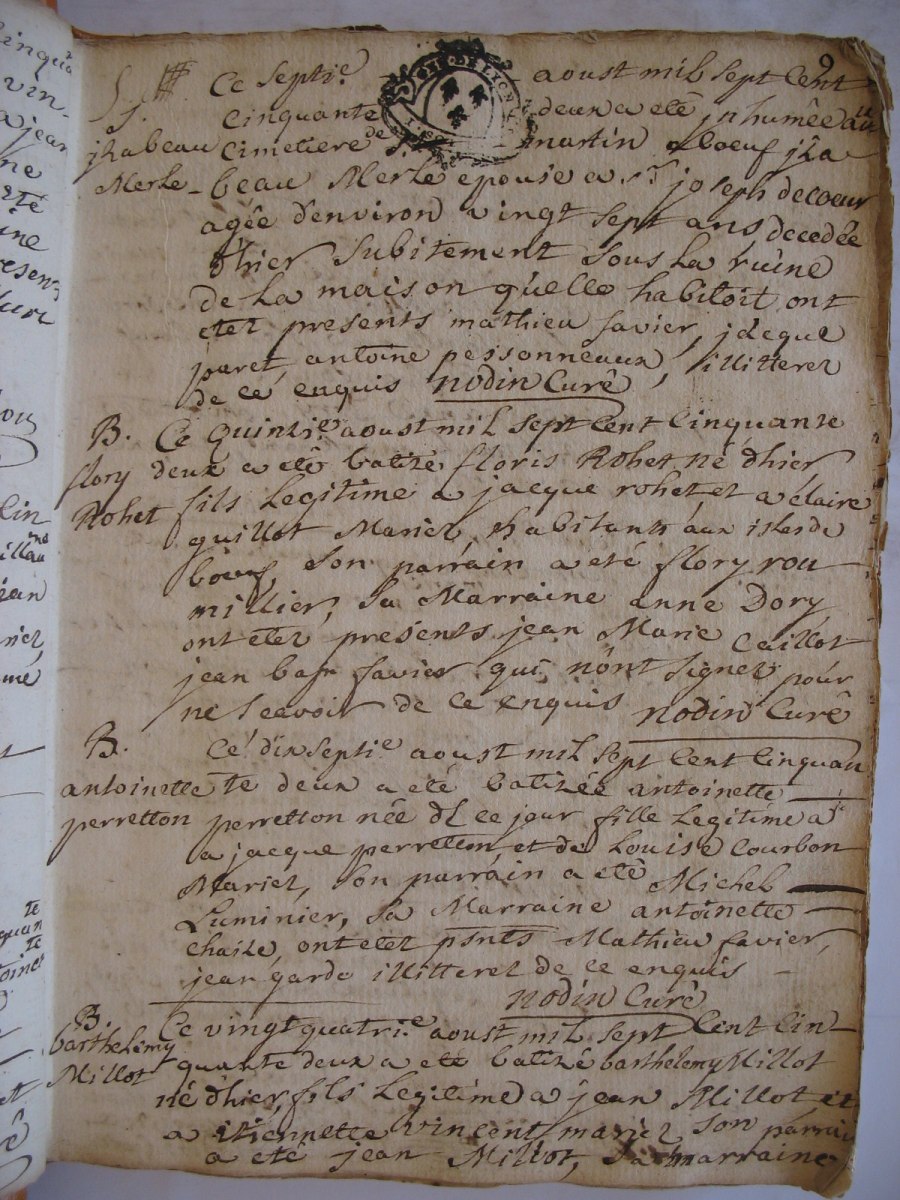 9
S. Ce septie aoust mil sept cent
cinquante deux a eté jnhumée au
jzabeau cimetiere de St martin d boeuf jza
Merle beau Merle epouse a Sr joseph decoeur
agée d'environ vingt sept ans decedée
dhier subitement sous la ruine
de la maison qu'elle habitoit ont
etez presents mathieu favier, jacque
joret, antoine pessonneaux, illitterez
de ce enquis nodin Curé
B. Ce quinzie aoust mil sept cent cinquante
flory deux a eté batizé floris Rohet né dhier
Rohet fils legitime a jacque rohet et a claire
guillot Mariez, habitants aux isles de
boeuf, son parrain a eté flory rou
millier, sa Marraine anne Dory
ont etez presents jean Marie Caillot
jean bapt favier qui n'ont signez pour
ne scavoir de ce enquis nodin Curé
B. Ce dix septie aoust mil sept cent cinquan
antoinette te deux a eté batizée antoinette
perretton perretton née de ce jour fille legitime a
a jacque perretton et de Louise Courbon
Mariez, son parrain a eté Michel
Luminier, sa Marraine antoinette
chaize, ont etez psnts Mathieu favier,
jean garde illitterez de ce enquis
nodin Curé
B. Ce vingt quatrie aoust mil sept cent cin
barthelemy quante deux a eté batizé barthelemy Millot
Millot né dhier, fils legitime a jean Millot et
a etiennette vincent mariez son parrain
a eté jean Millot, sa marraine